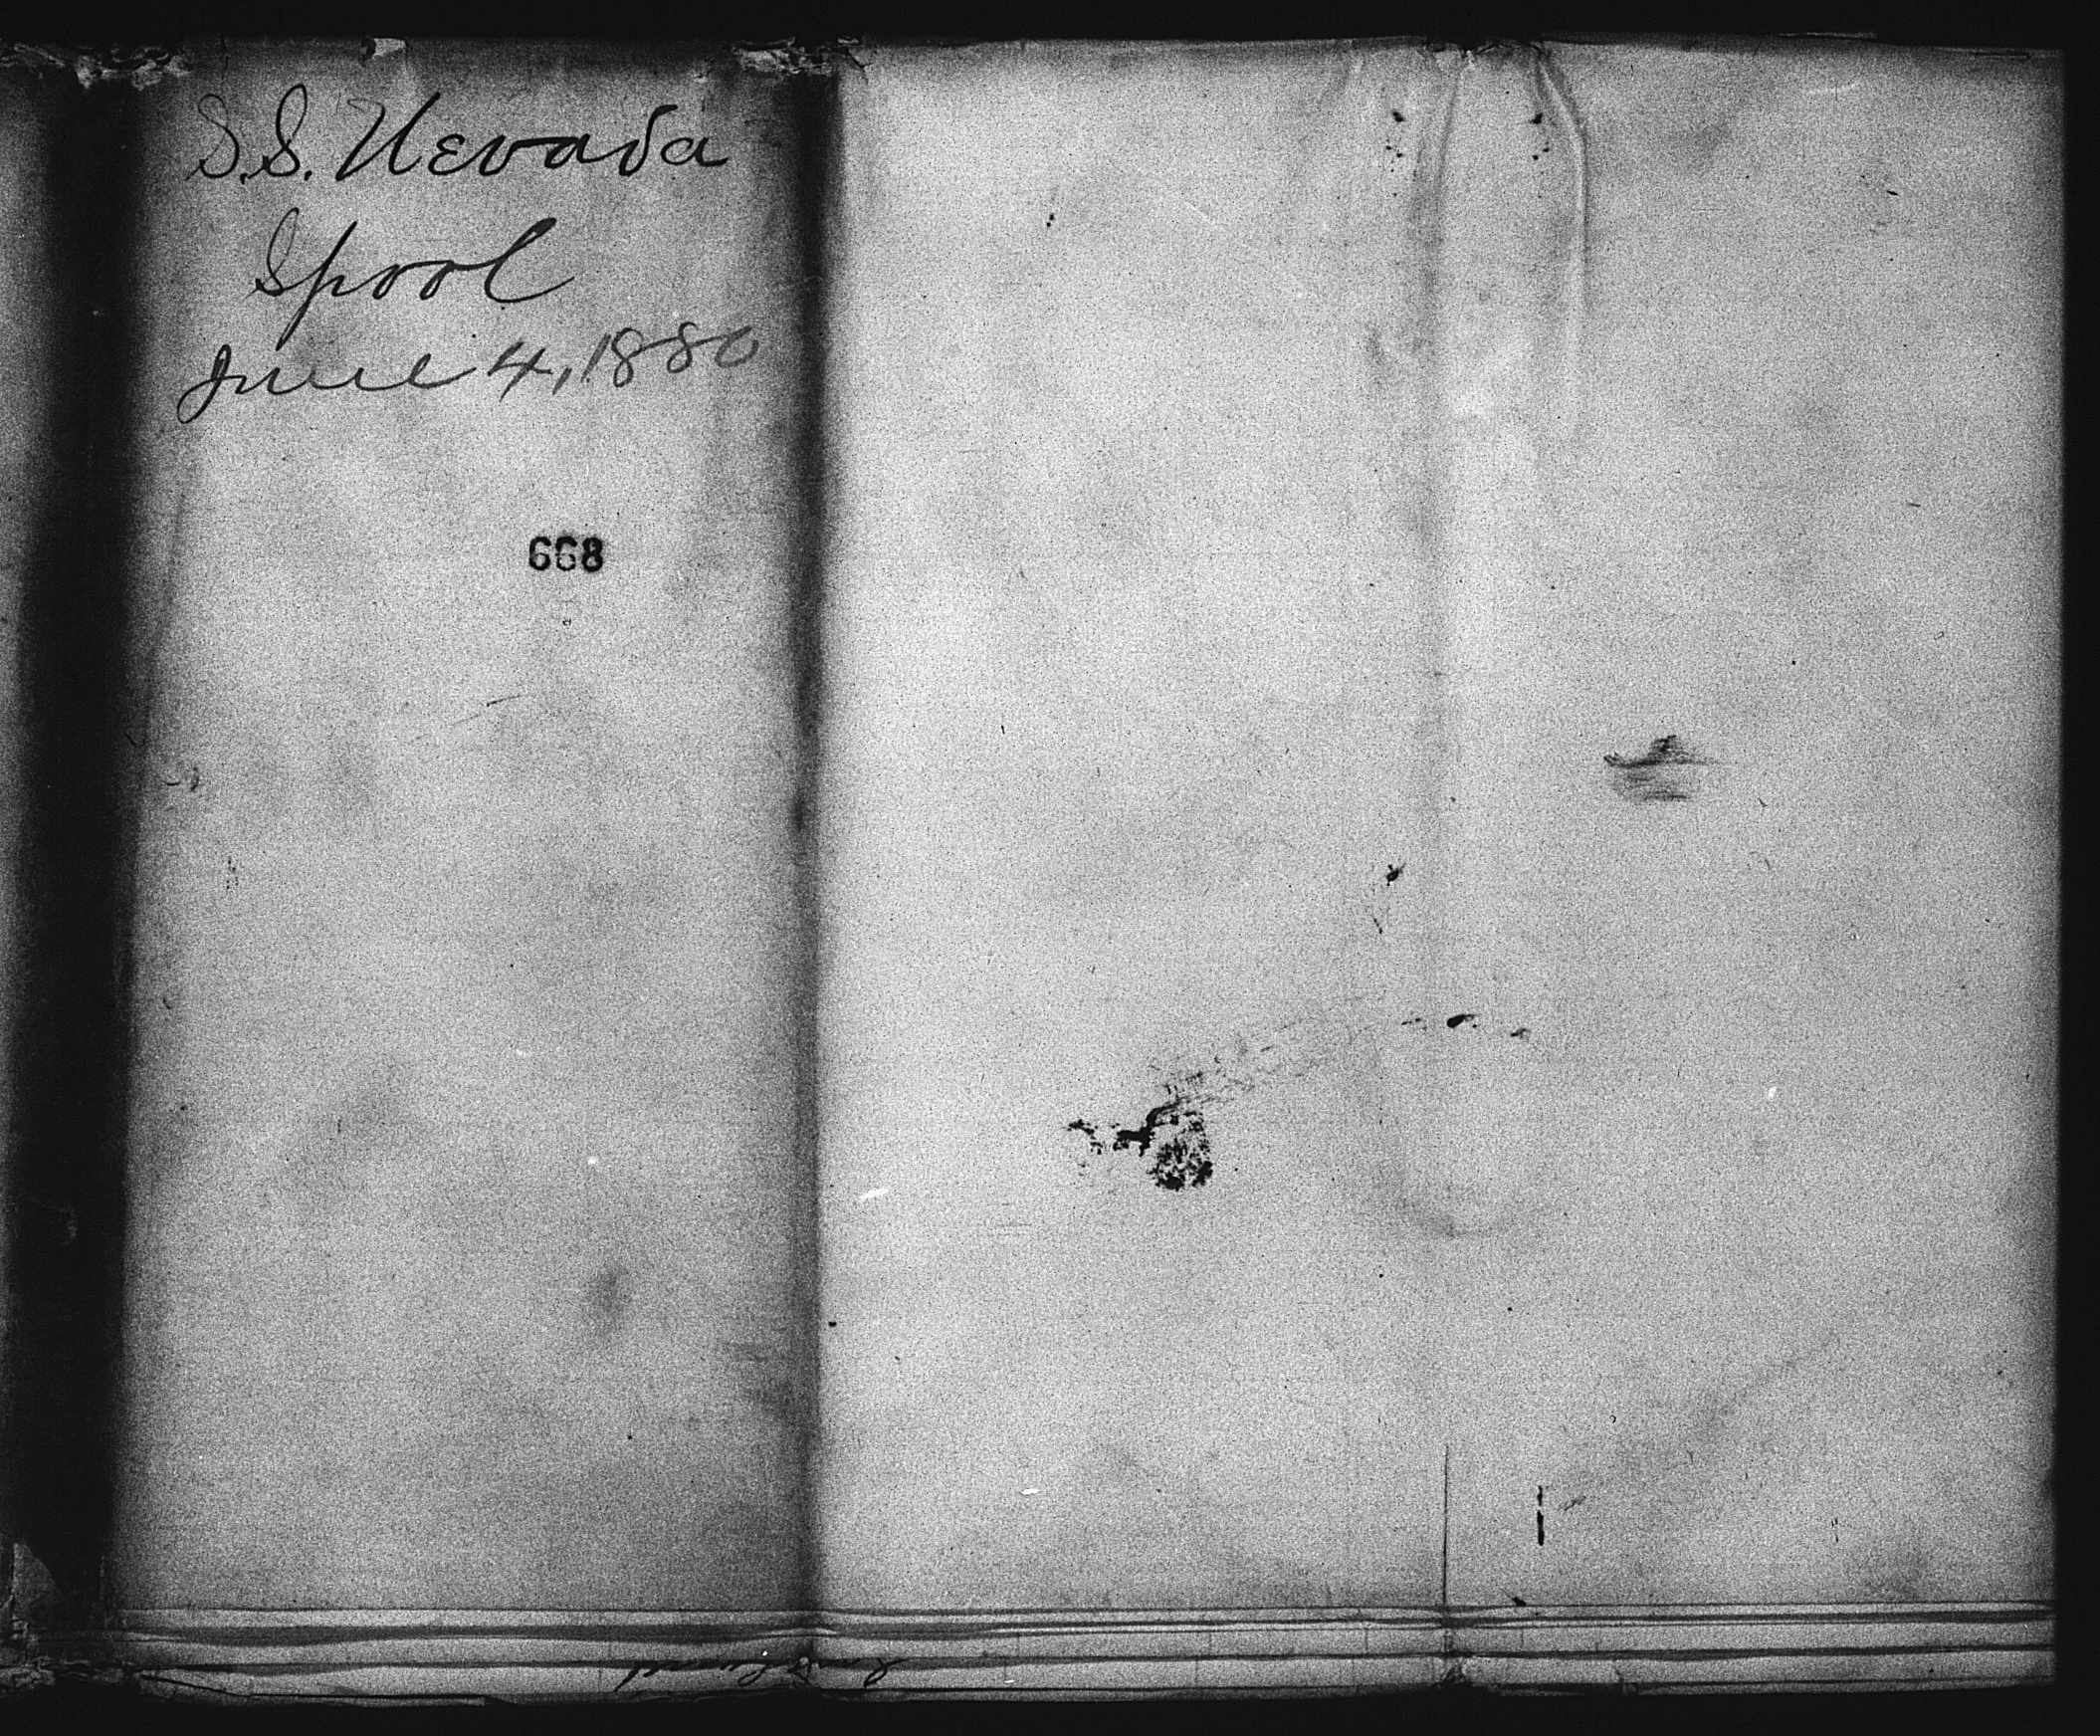 S.S. Nevada
Spool
June 4, 1880
668